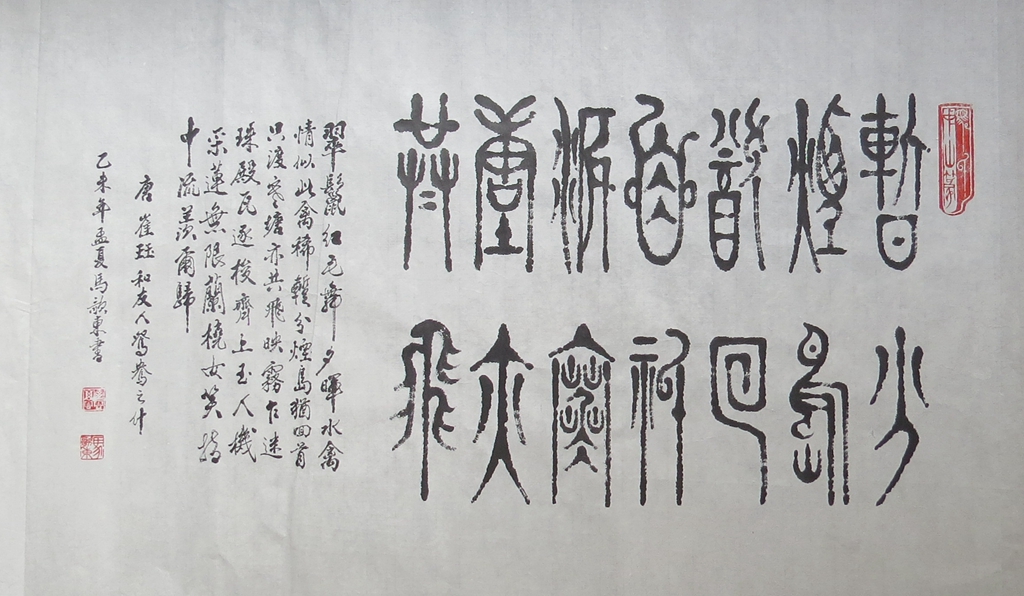 暫分
煙島
猶回
首祇
渡寒
塘亦
共飛
翠鬣紅毛舞夕暉水禽
情似此禽稀暫分煙島猶回首
只渡寒塘亦共飛映霧乍迷
珠殿瓦逐梭齊上玉人機
采蓮無限蘭橈女笑指
中流羨爾歸
唐崔珏和友人鴛鴦之什
乙未年孟夏馬歌東書